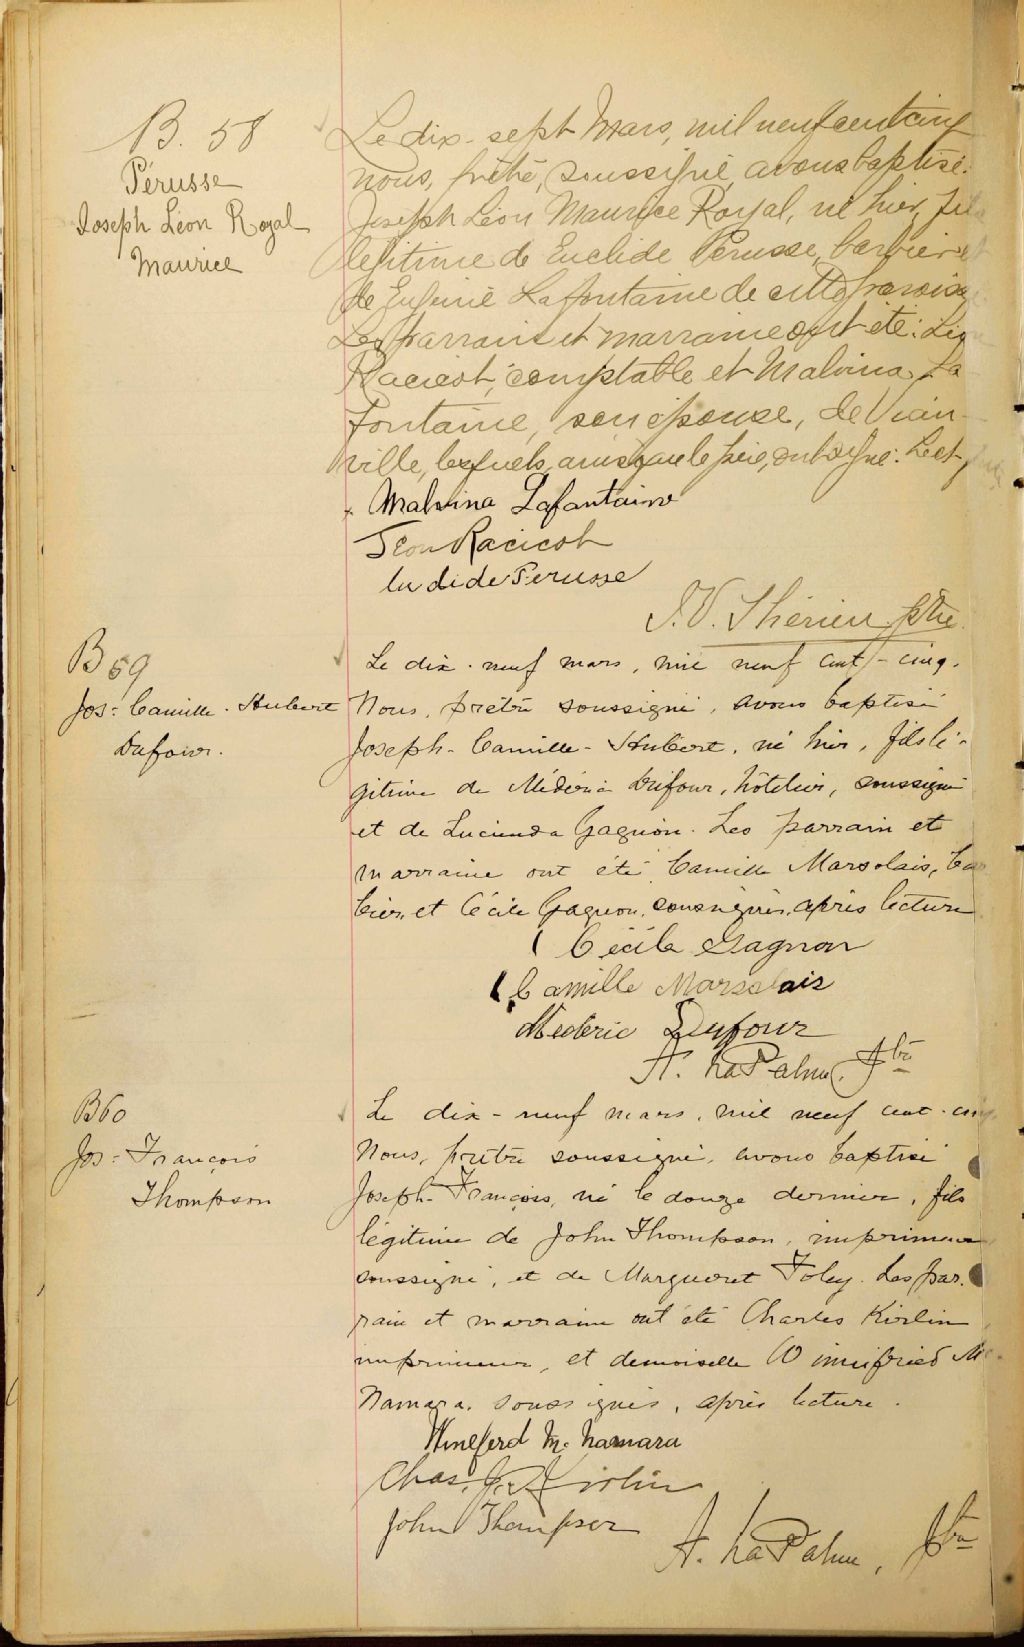 B. 58
Pérusse
Joseph Léon Royal
Maurice
Le dix-sept Mars, mil neuf cent cinq
nous, prêtre, soussigné, avons baptisé
Joseph Léon Maurice Royal, né hier, fils
légitime de Euclide Pérusse, barbier et
de Eugénie Lafontaine de cette paroisse
Les parrain et marraine ont été: Léon
Racicot, comptable et Malvina La
fontaine, son épouse, de
ville, lesquels, ainsi que le père, ont signé. Lect.
Malvina Lafontaine
Léon Racicot
Pérusse
J.V. Thérien ptre.
B 59
Jos: Camille. Hubert
Dufour.
Le dix-neuf mars, mil neuf cent-cinq.
Nous, prêtre soussigné, avons baptisé
Joseph-Camille-Hubert, né hier, fils lé-
gitime de Médéric Dufour, hôtelier, soussigné
et de Lucienda Gagnon. Les parrain et
marraine ont été Camille Marsolais,
bier, et Cécile Gagnon, soussignés, après lecture
Cécile Gagnon
Camille Marsolais
Mederic Dufour
A. LaPalme, Ptre
B60
Jos: François
Thompson
Le dix-neuf mars, mil neuf cent-cinq
Nous, prêtre soussigné, avons baptisé
Joseph-François, né le douze dernier, fils
légitime de John Thompson, imprimeur
soussigné, et de Margueret Foley. Les par-
rain et marraine ont été Charles Kirlin
imprimeur, et demoiselle Winnifried Mc
Namara, soussignés, après lecture.
Wineferd Mc Namara
Chas. J. Kirlin
John Thompson
A. LaPalme, Ptre